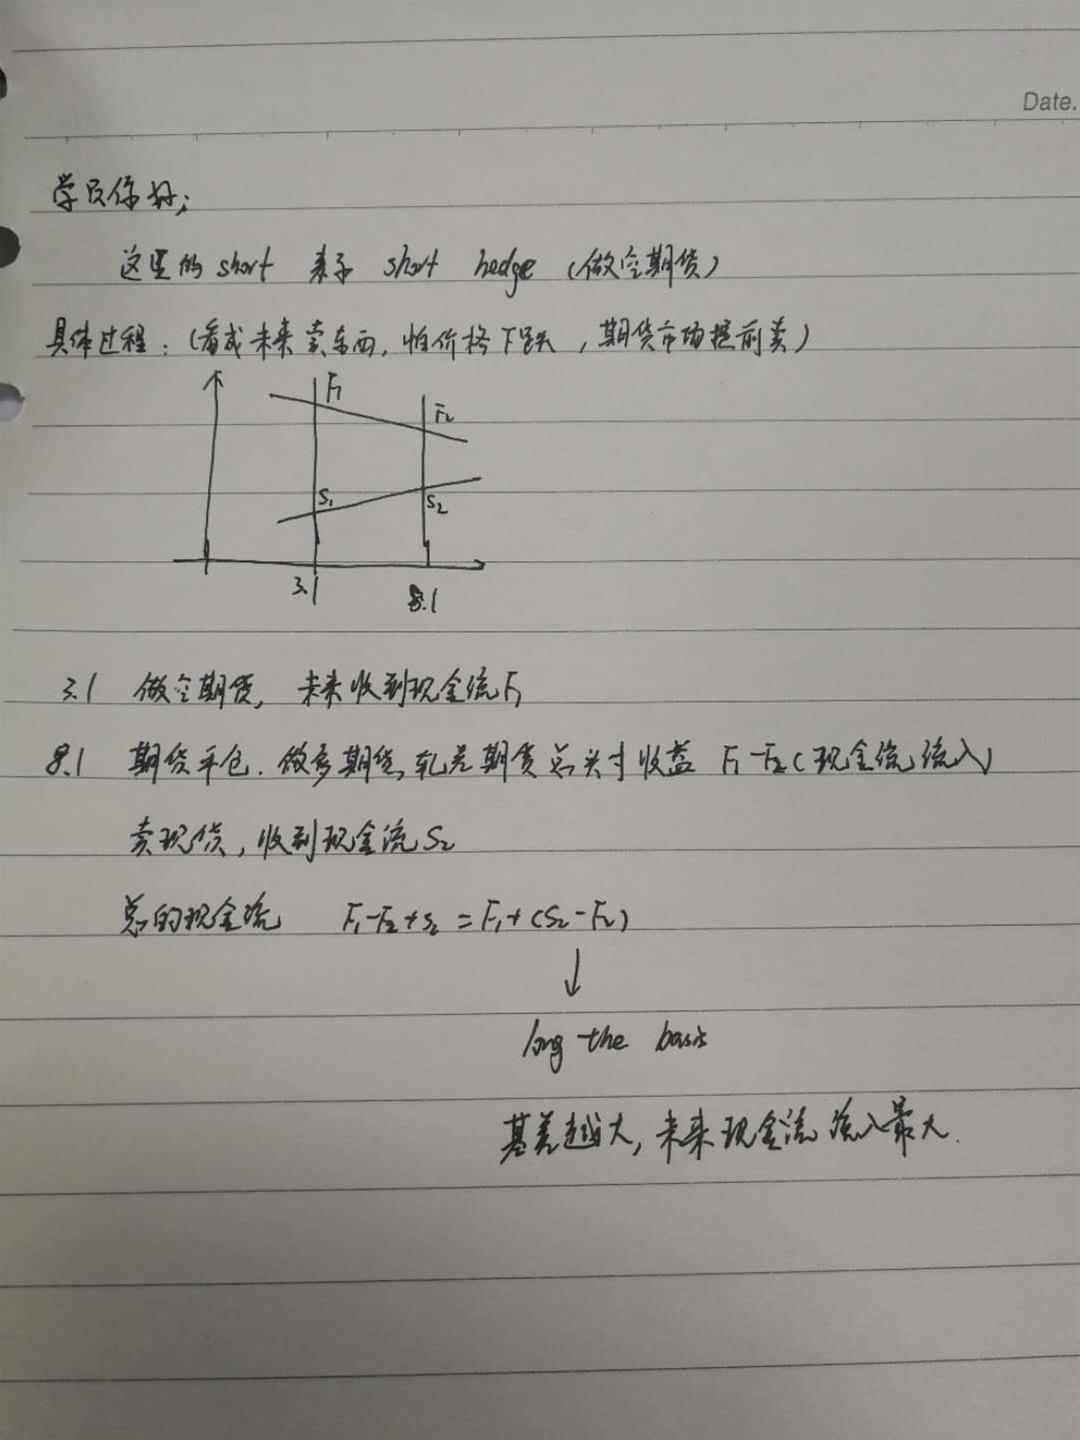 Date.
学员你好;
这里的 short 表示 short hedge (做空期货)
具体过程:(看成未来卖东西,怕价格下跌,期货市场提前卖)
F₁
F₂
S₁
S₂
3.1
8.1
3.1 做空期货,未来收到现金流F₁
8.1 期货平仓.做多期货,轧差期货总头寸收益 F₁-F₂(现金流流入)
卖现货,收到现金流S₂
总的现金流 F₁-F₂+S₂=F₁+(S₂-F₂)
↓
long the basis
基差越大,未来现金流流入最大.